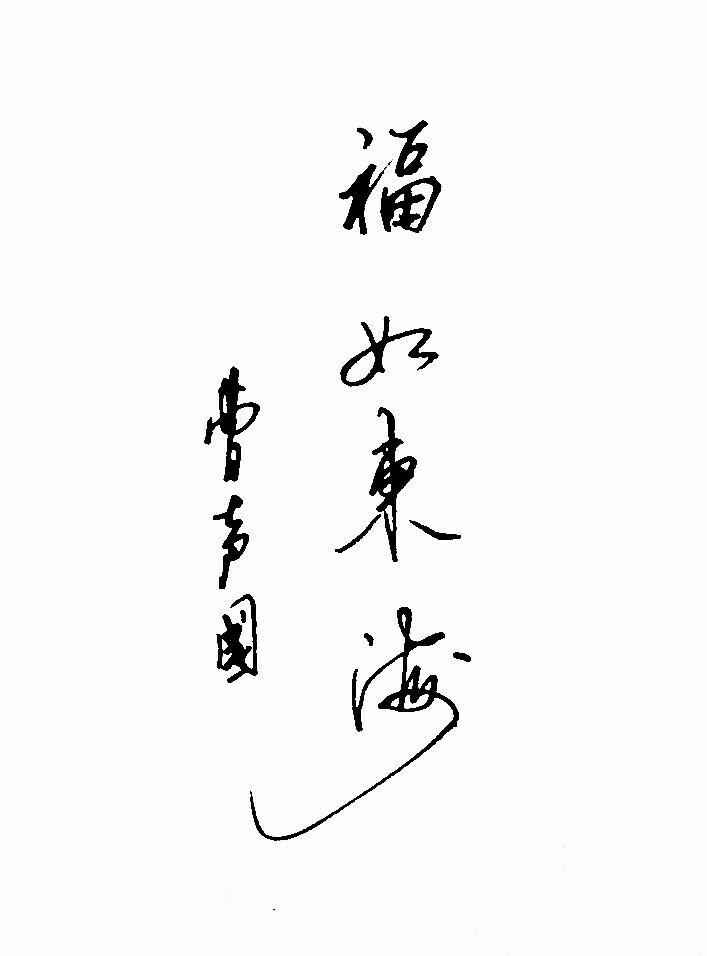 福如東海
曹声國